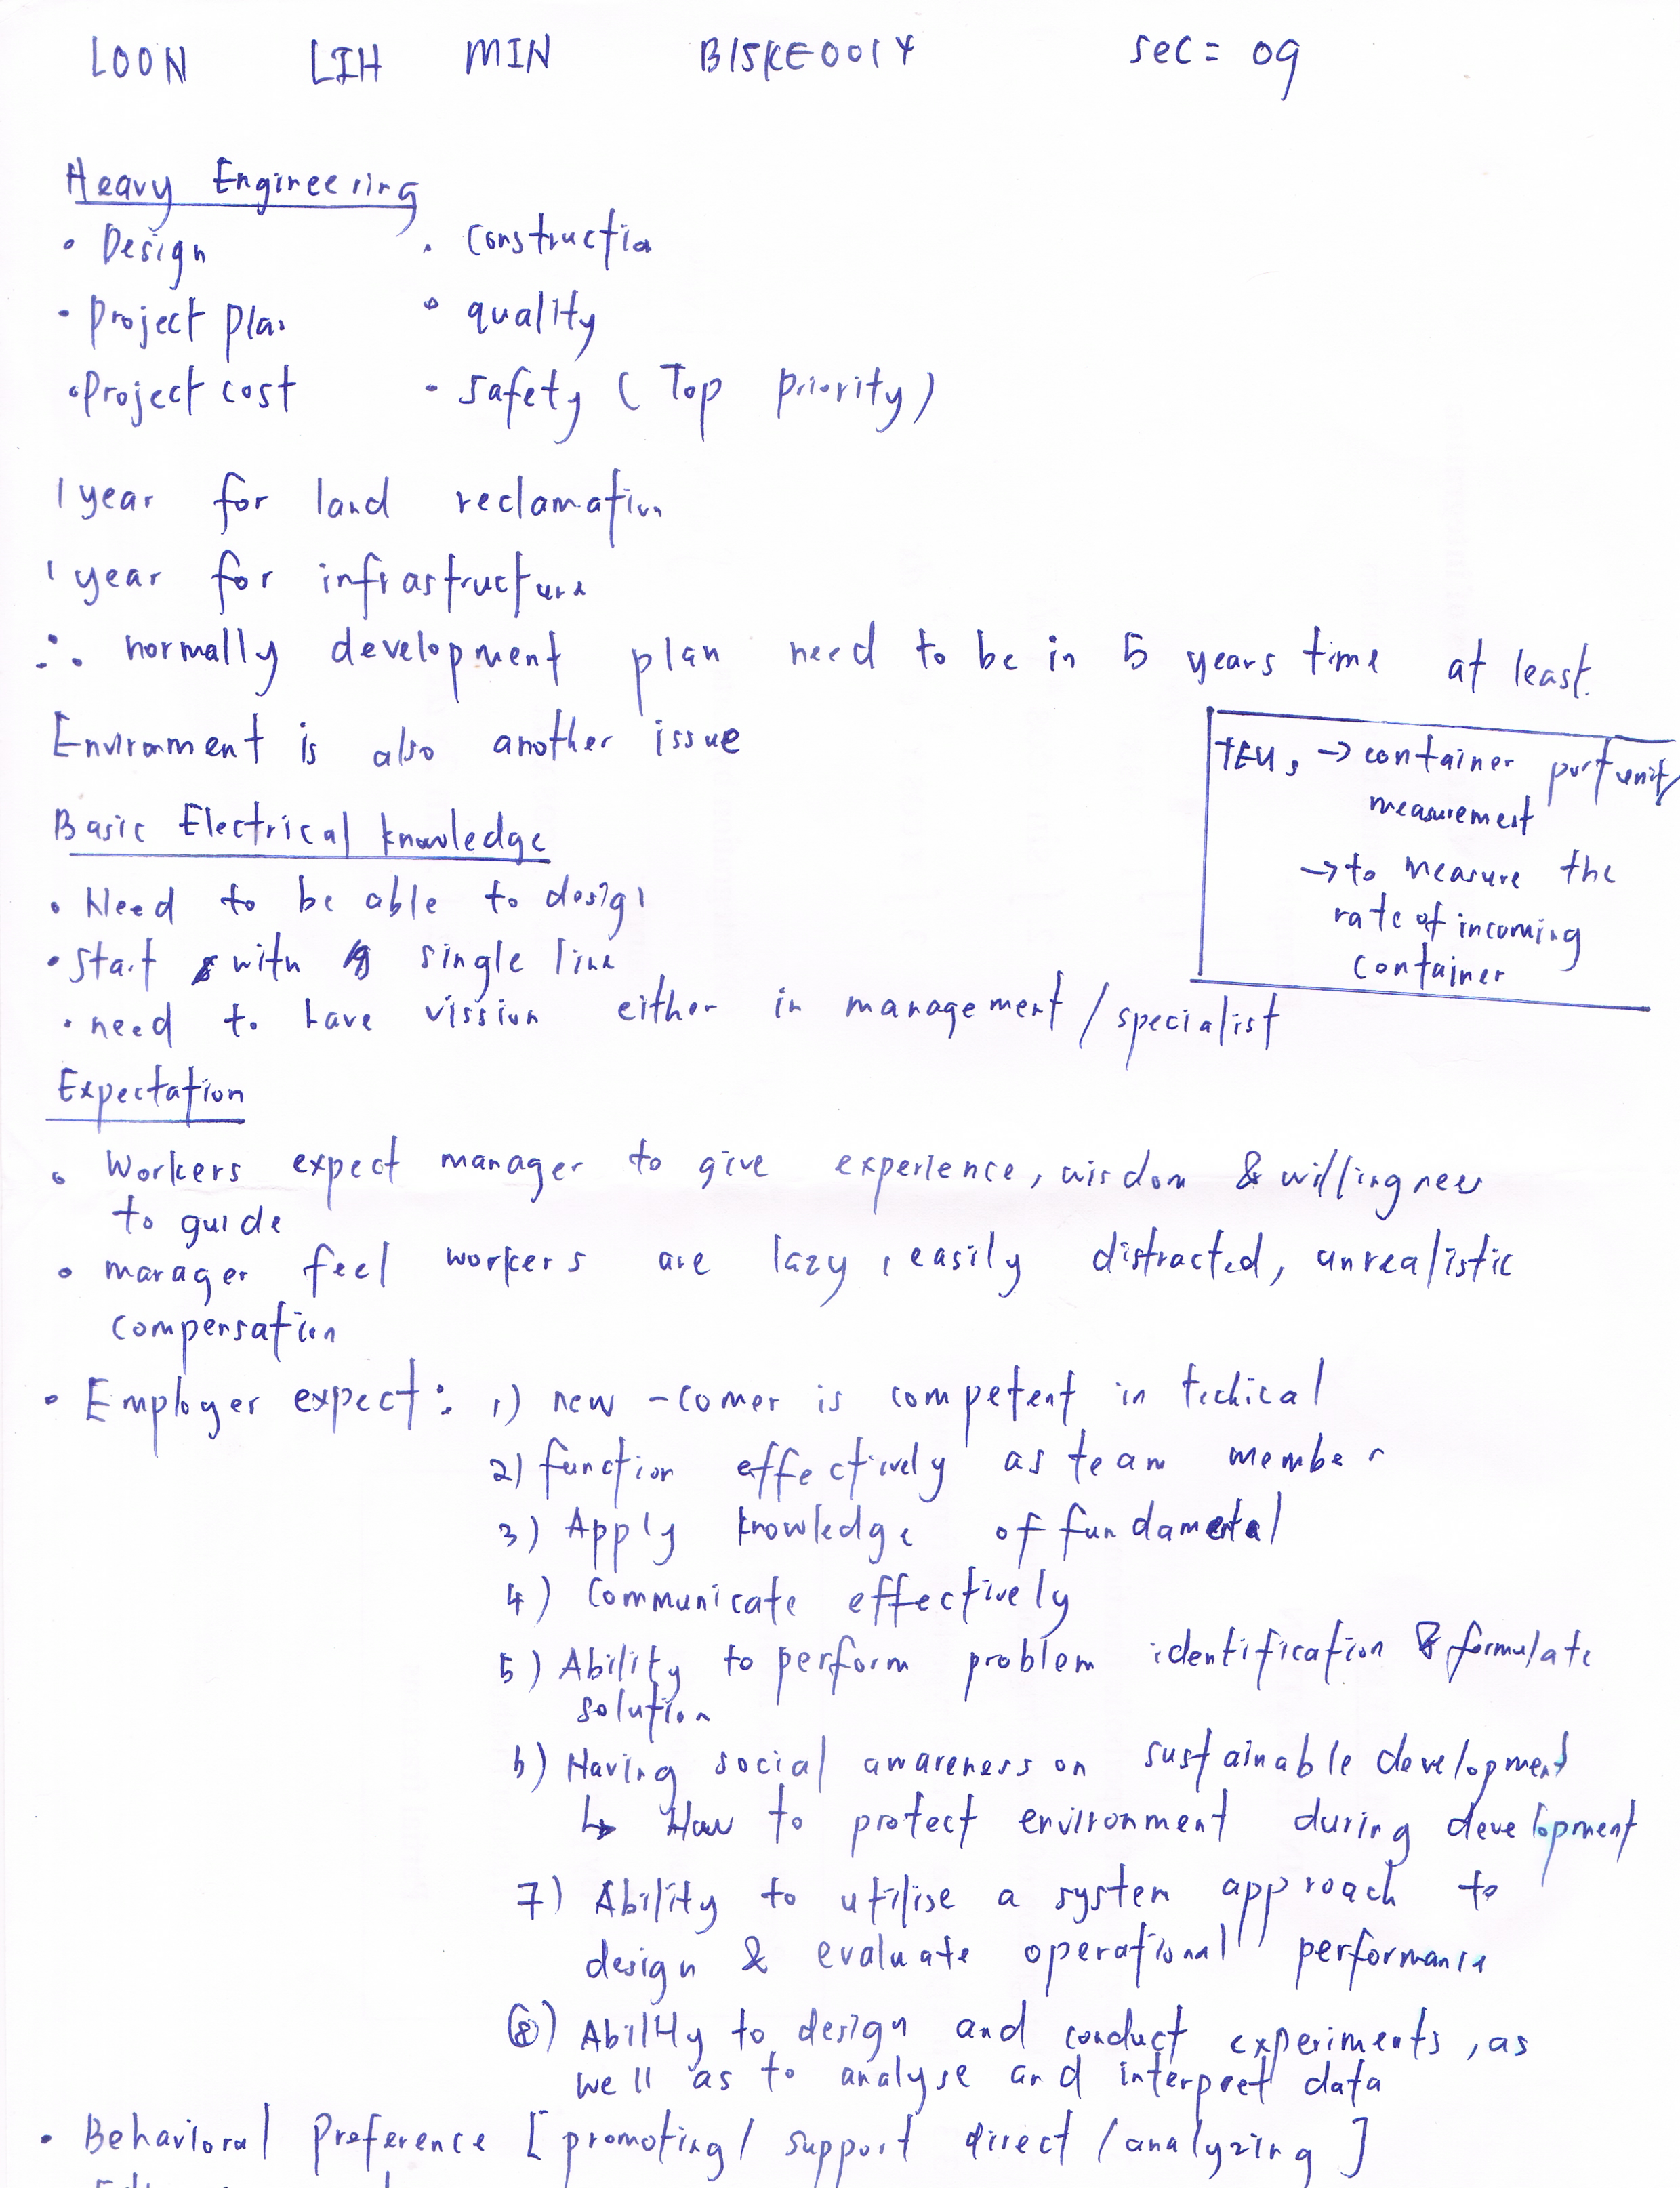 LOON LIH MIN B15KE0014 sec = 09
Heavy Engineering
• Design • Construction
• Project plan • quality
• Project cost • Safety (Top Priority)
1 year for land reclamation
1 year for infrastructure
∴ normally development plan need to be in 5 years time at least.
Environment is also another issue
TEUs → container port unit
measurement
→ to measure the
rate of incoming
container
Basic Electrical knowledge
• Need to be able to design
• Start with single line
• need to have vission either in management / specialist
Expectation
• Workers expect manager to give experience, wisdom & willingness
to guide
• manager feel workers are lazy, easily distracted, unrealistic
compensation
• Employer expect: 1) new-comer is competent in techical
2) function effectively as team member
3) Apply knowledge of fundamental
4) Communicate effectively
5) Ability to perform problem identification & formulate
solution
6) Having social awareness on sustainable development
↳ How to protect environment during development
7) Ability to utilise a system approach to
design & evaluate operational performance
8) Ability to design and conduct experiments, as
well as to analyse and interpret data
• Behavioral Preference [promoting / support direct / analyzing]